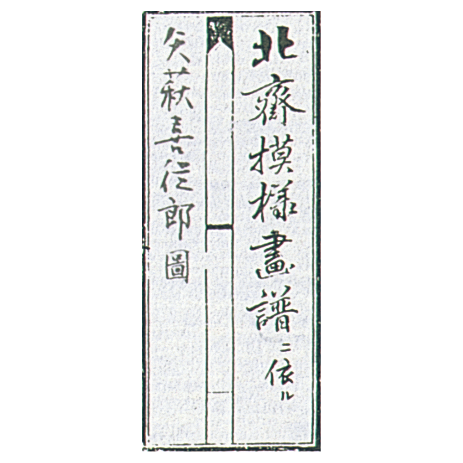 北齋摸様畫譜ニ依ル
矢萩喜従郎圖